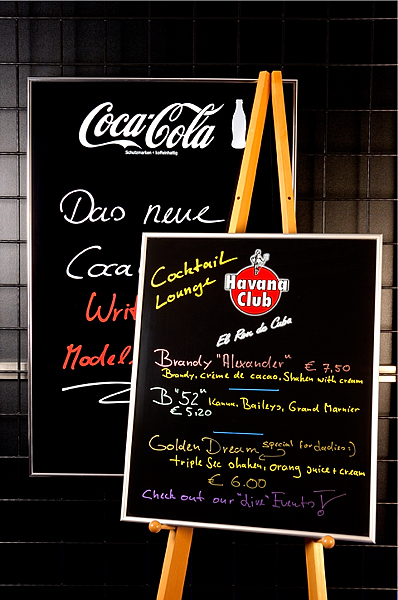 Coca-Cola
Schutzmarken • koffeinhaltig
Das neue
Coca
Writ
Model
Cocktail
Lounge
Havana
Club
El Ron de Cuba
Brandy "Alexander" € 7,50
Brandy, crème de cacao, Shaken with cream
B "52" Kahlua, Baileys, Grand Marnier
€ 5,20
Golden Dream special for ladies :)
triple Sec shaken, orang juice + cream
€ 6.00
Check out our "live" Events!